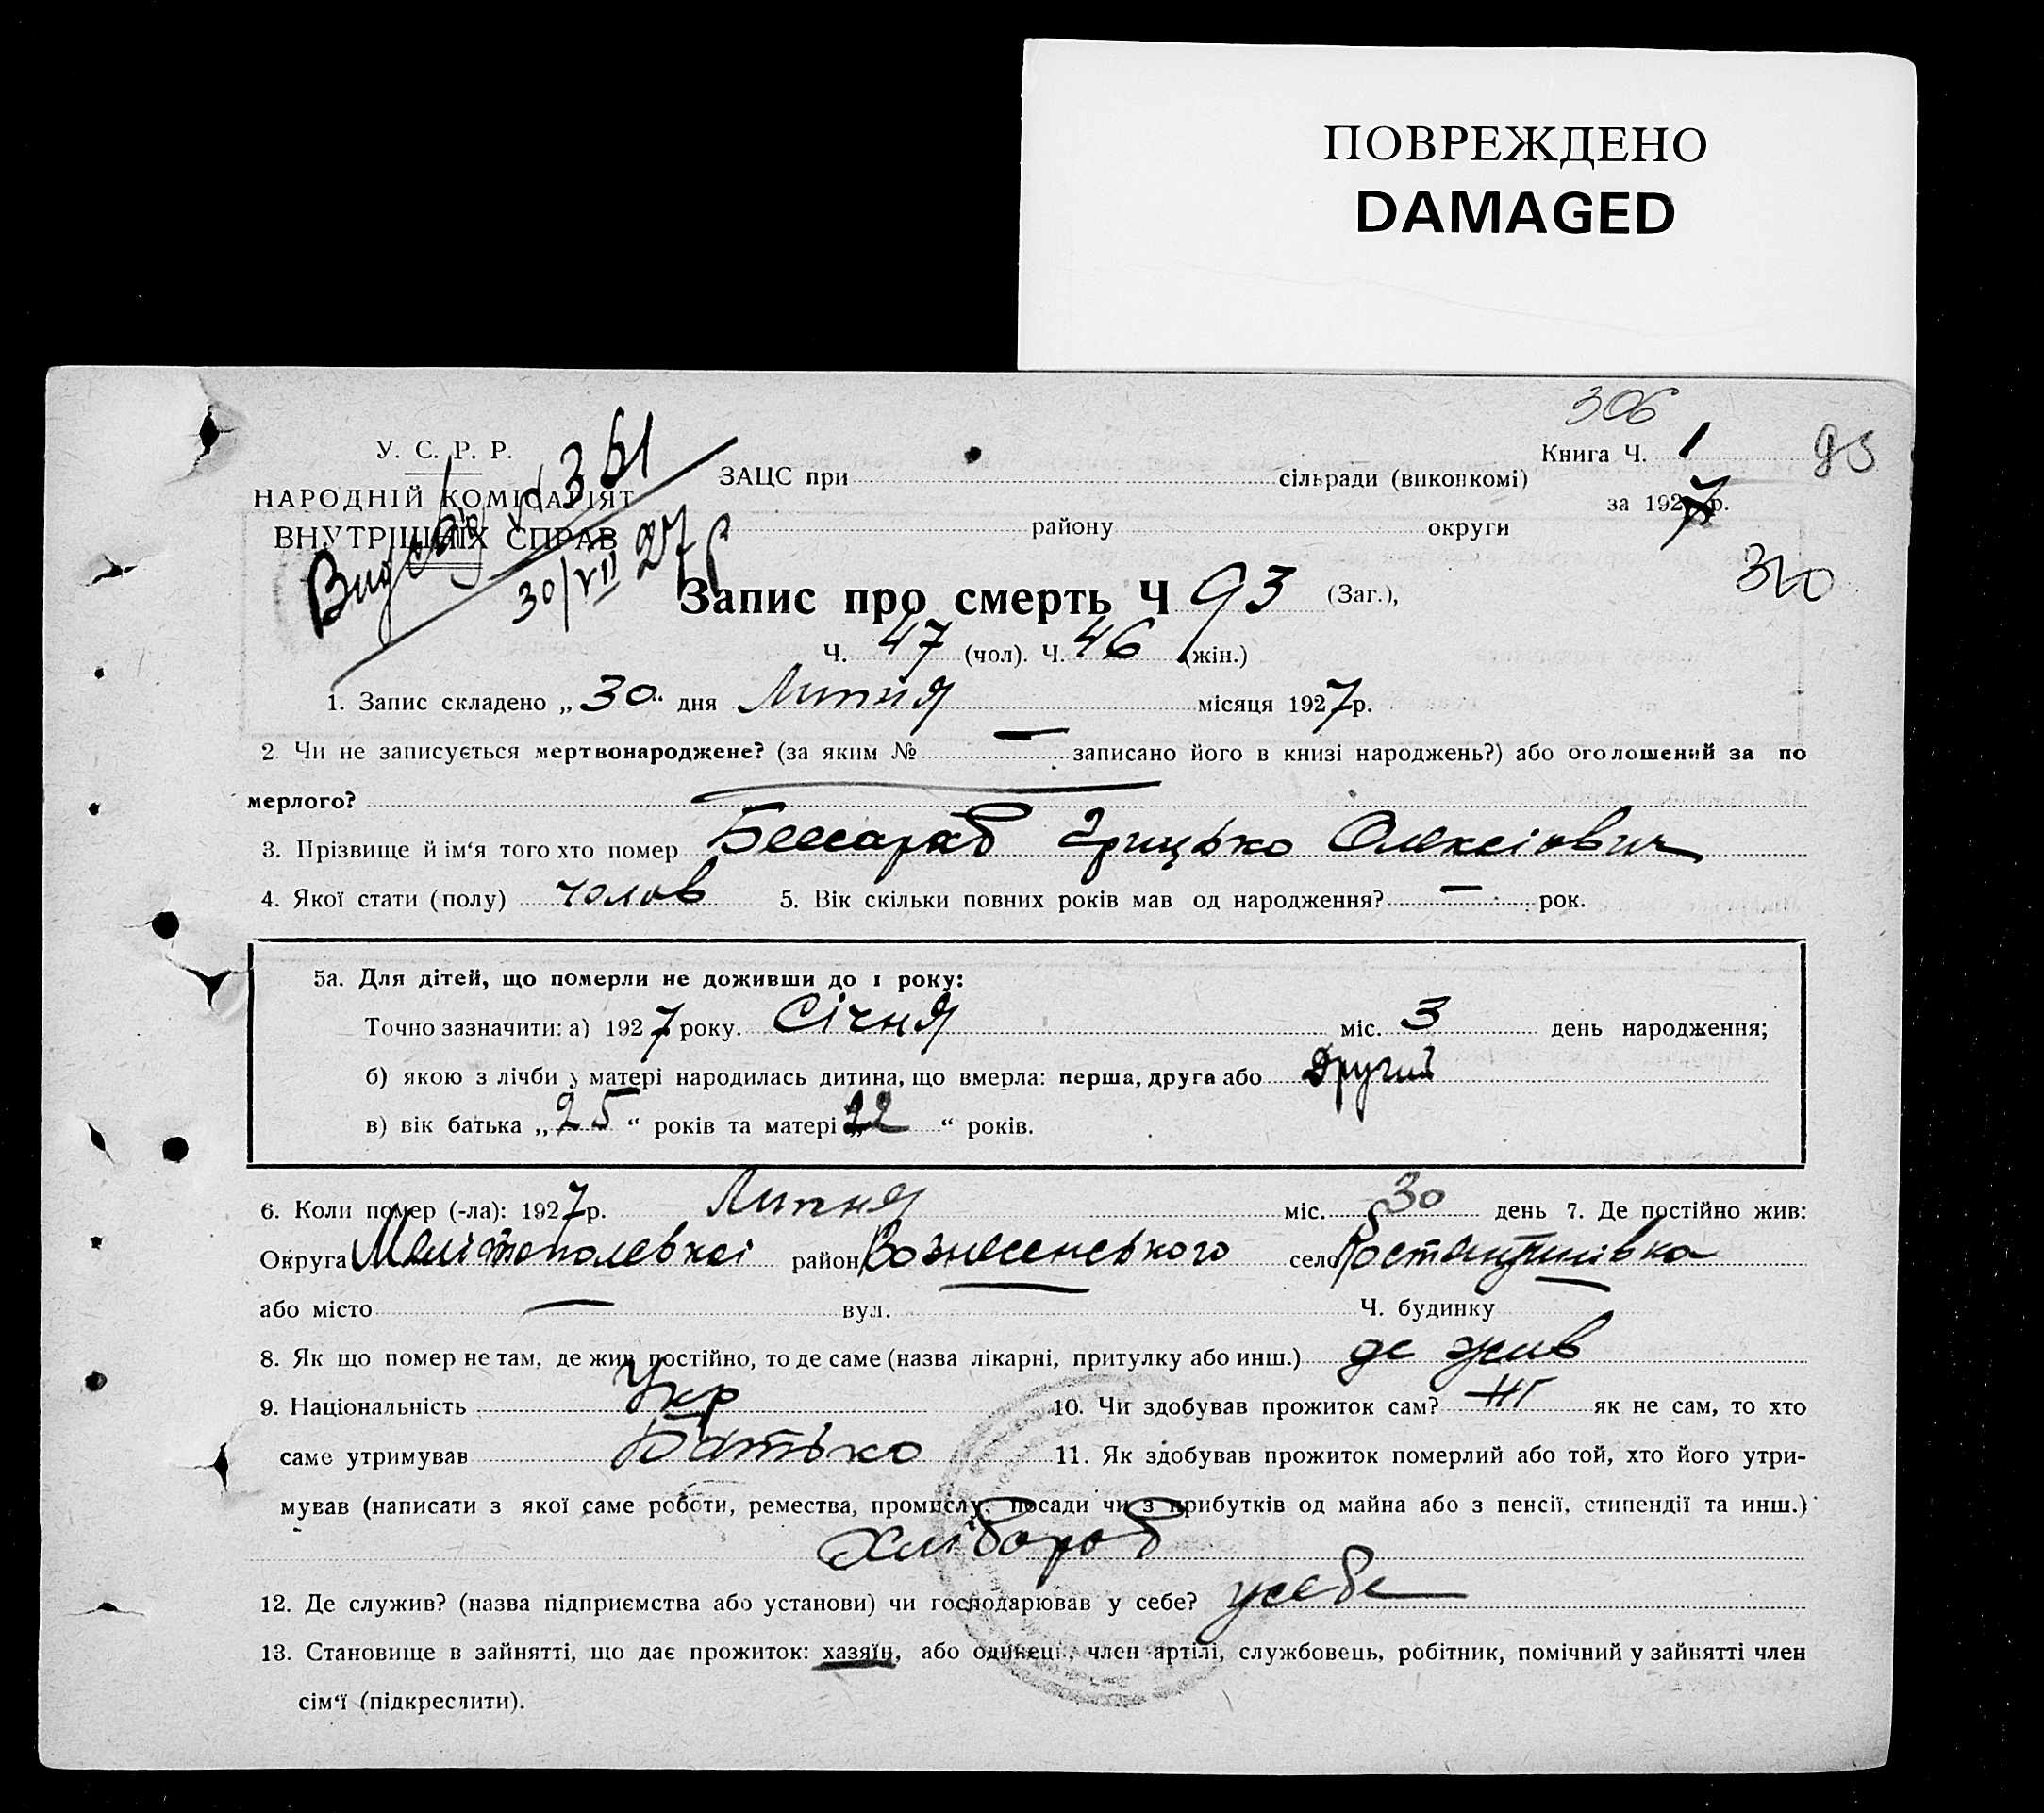 ПОВРЕЖДЕНО
DAMAGED
306
У. С. Р. Р.
Книга Ч. 1
95
ЗАЦС при сільради (виконкомі)
НАРОДНІЙ КОМІСАРІЯТ
за 1927 р.
ВНУТРІШНІХ СПРАВ
району округи
Видано № 361
30/VII 27 р
320
Запис про смерть Ч 93 (Заг.),
Ч. 47 (чол). Ч. 46 (жін.)
1. Запис складено „30“ дня Липня місяця 1927 р.
2. Чи не записується мертвонароджене? (за яким № — записано його в книзі народжень?) або оголошений за по
мерлого? —
3. Прізвище й ім‘я того хто помер Бессараб Грицько Олексієвич
4. Якої стати (полу) чолов 5. Вік скільки повних років мав од народження? — рок.
5а. Для дітей, що померли не доживши до 1 року:
Точно зазначити: а) 1927 року. Січня міс. 3 день народження;
б) якою з лічби у матері народилась дитина, що вмерла: перша, друга або Другий
в) вік батька „25“ років та матері „22“ років.
6. Коли помер (-ла): 1927 р. Липня міс. 30 день 7. Де постійно жив:
Округа Мелітопольскої район Вознесенського село Костянтинівка
або місто — вул. Ч. будинку
8. Як що помер не там, де жив постійно, то де саме (назва лікарні, притулку або инш.) де жив
9. Національність Укр 10. Чи здобував прожиток сам? Ні як не сам, то хто
саме утримував Батько 11. Як здобував прожиток померлий або той, хто його утри-
мував (написати з якої саме роботи, ремества, промислу, посади чи з прибутків од майна або з пенсії, стипендії та инш.)
Хлібороб
12. Де служив? (назва підприємства або установи) чи господарював у себе? у себе
13. Становище в зайнятті, що дає прожиток: хазяїн, або одинець, член артілі, службовець, робітник, помічний у зайнятті член
сім‘ї (підкреслити).